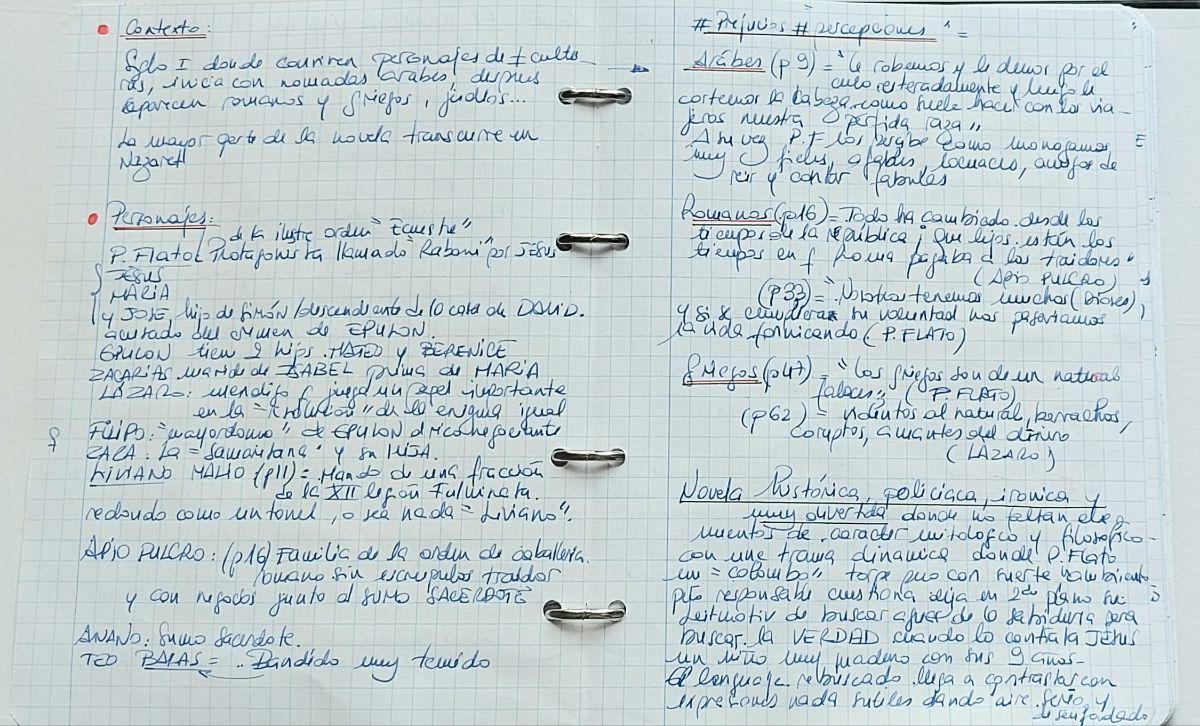 Contexto:
Siglo I donde conviven personajes de ≠ cultu-
ras, inicia con nomadas árabes, después
aparecen romanos y griegos, judíos...
La mayor parte de la novela transcurre en
Nazaret
Personajes:
de la ilustre orden "Ecuestre"
P. Flato Protagonista llamado "Raboni" por JESUS
JESUS
MARIA
y JOSE, hijo de Simón/descendiente de la casa de DAVID.
acusado del crimen de EPULON.
EPULON tien 2 hijos. MATEO y BERENICE
ZACARIAS marido de ISABEL prima de MARIA
LAZARO: mendigo juega un papel importante
en la "resolución" de la enigma igual
FILIPO: "mayordomo" de EPULON d rico negociante
ZARA: La "samaritana" y su HIJA.
LIVIANO MALIO (p11) = Mando de una fracción
de la XII legión Fulminata.
redondo como un tonel, o sea nada "Liviano".
APIO PULCRO: (p16) Familia de la orden de caballeria.
romano sin escrupulos traidor
y con negocios junto al SUMO SACERDOTE
ANANO: Sumo Sacerdote.
TEO BALAS = Bandido muy temido
# Prejuicios # percepciones " =
Arábes (p 9) = "Le robemos y le demos por el
culo reiteradamente y luego le
cortemos la cabeza, como suele hacer con los via-
jeros nuestra pérfida raza"
A su vez P.F los describe como monogamos
muy fieles, afables, locuaces, amigos de
reir y contar fabulas
Romanos (p16) = Todo ha cambiado desde los
tiempos de la república ¡ Que lejos están los
tiempos en q Roma pagaba a los traidores"
(APIO PULCRO)
(p33) = Nosotros tenemos muchos (Dioses)
y si se cumpliera su voluntad nos pasariamos
la vida fornicando (P. FLATO)
Griegos (p47) = "Los griegos son de un natural
falaces" (P. FLATO)
(p62) = violentos al natural, borrachos,
corruptos, amantes del dinero
(LAZARO)
Novela histórica, policiaca, ironica y
muy divertida donde no faltan ele-
mentos de caracter mitologico y filosofico-
con une trama dinamica donde P. Flato
un "colombo" torpe pero con suerte y ambiente
pero responsable cuestiona deja en 2do plano su
leitmotiv de buscar aguas de la sabiduria para
buscar la VERDAD cuando lo contrata JESUS
un niño muy maduro con sus 9 años-
El lenguaje rebuscado llega a contrastar con
expresiones nada sutiles dando aire serio y
desenfadado